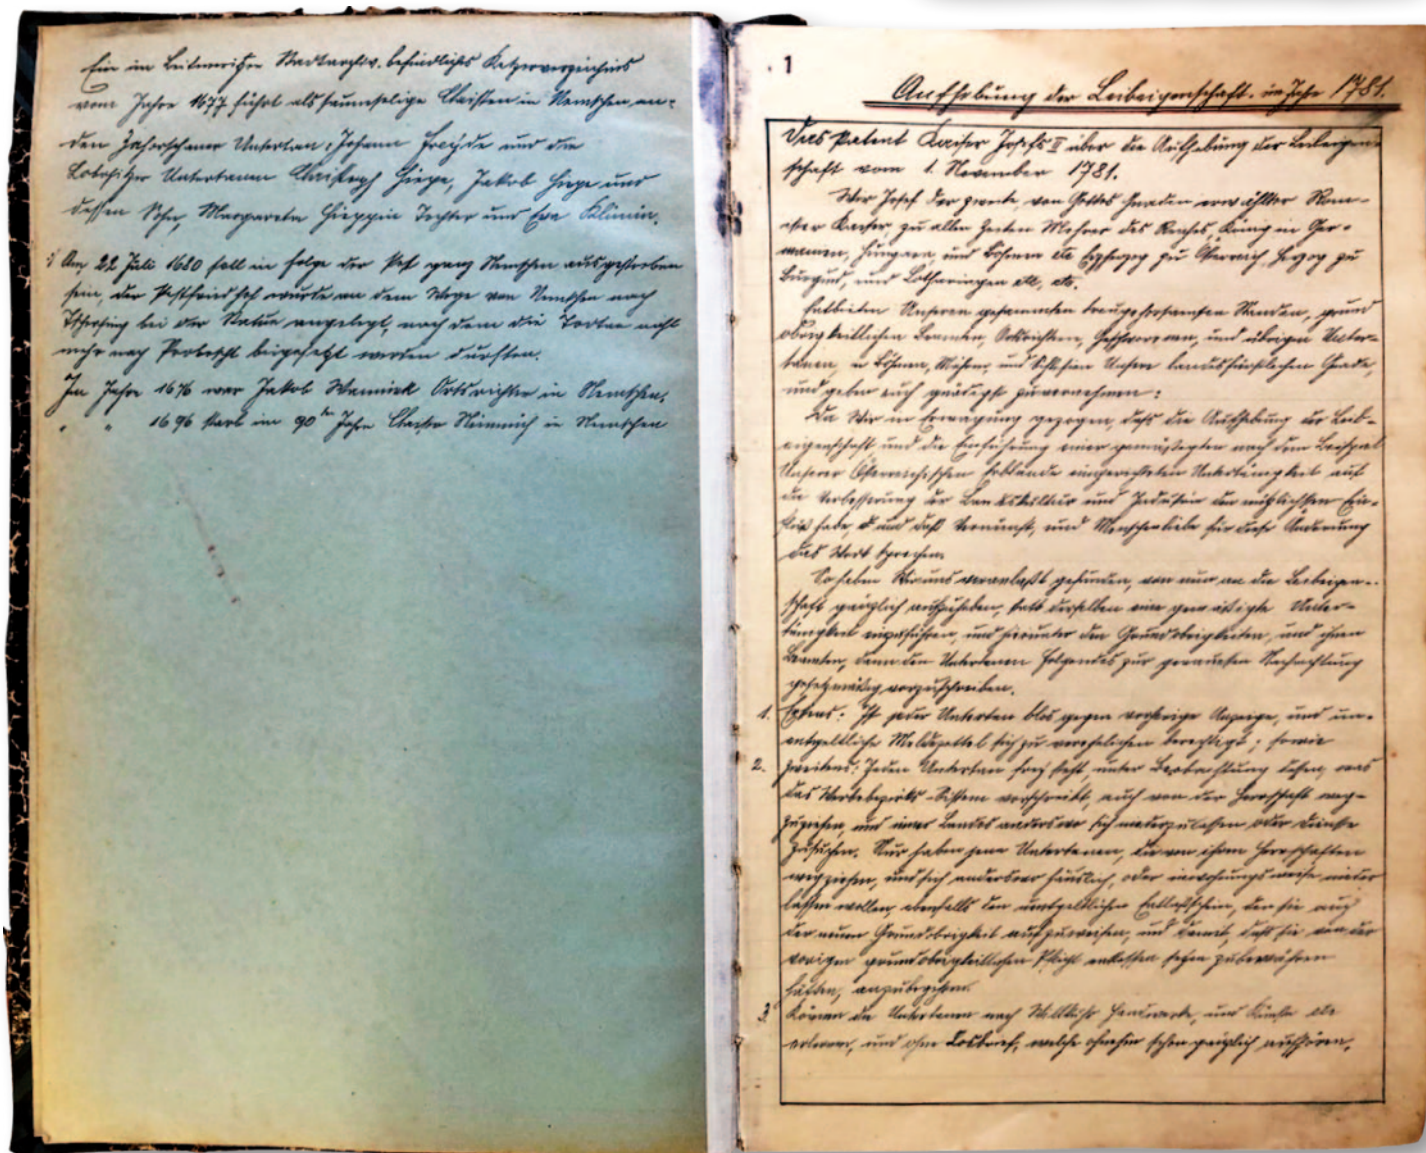 Ein im Leitmeritzer Stadtarchiv. befindliches Ketzerverzeichnis
vom Jahre 1677 führt als saumselige Christen in Nemschen an:
den Zahorschaner Untertan, Johann und die
Lobositzer Untertanen Christoph Hiepe, Jakob Hiepe und
dessen Sohn, Margareta Hieppin Tochter und Eva Klimin.
Am 22 Juli 1680 soll in folge der Pest ganz Nemschen ausgestorben
sein, der Pestfriedhof wurde an dem Wege von Nemschen nach
Tschersing bei der Statue angelegt, nach dem die Toten nicht
mehr nach Proboscht beigesetzt werden durften.
Im Jahre 1676 war Jakob Wanniek Ortsrichter in Nemschen.
" " 1696 starb im 90ten Jahre in Nemschen
1
Aufhebung der Leibeigenschaft. im Jahre 1781.
Das Patent Kaiser Josefs II über die Aufhebung der Leibeigen-
schaft vom 1. November 1781.
Wir Josef der zweite, von Gottes Gnaden erwählter Röm-
ischer Kaiser, zu allen Zeiten Mehrer des Reiches, König in Ger-
manien, Hungarn, und Böhmen etc Erzherzog zu Österreich, Herzog zu
Burgund, und Lotharingen etc, etc.
Entbieten Unseren gesammten treugehorsamsten Ständen, grund
obrigkeitlichen Beamten, Ortsrichtern, Geschworenen, und übrigen Unter-
tanen, in Böhmen, Mähren, und Schlesien Unsere landesfürstlichen Gnade,
und geben euch gnädigst zuvernehmen:
Da Wir in Erwägung gezogen, daß die Aufhebung der Leib-
eigenschaft und die Einführung einer gemäßigten nach dem Beispiel
Unserer Österreichischen Erblande eingerichteten Untertänigkeit auf
die Verbesserung der Landeskultur und Industrie den nützlichsten Ein-
fluß habe, und daß Vernunft, und Menschenliebe für diese Änderung
das Wort sprechen.
So haben Wir uns veranlaßt gefunden, von nun an die Leibeigen-
schaft gänzlich aufzuheben, statt derselben eine gemäßigte Unter-
tänigkeit einzuführen, und hierunter den Grundobrigkeiten, und ihren
Beamten, denn den Untertanen folgendes zur genauesten Nachachtung
gesetzmäßig vorzuschreiben.
1. Erstens: Ist jeder Untertan blos gegen vorherige Anzeige, und un-
entgeltliche Meldzettel sich zu verehelichen berechtigt; sowie
2. Zweitens: Jedem Untertan frei steht, unter Beobachtung dessen, was
das Werbebezirks-Sistem vorschreibt, auch von der Herrschaft weg-
zuziehen, und inner Landes anderswo sich niederzulassen oder Dienste
zu suchen. Nur haben jene Untertanen, die von ihren Herrschaften
wegziehen, und sich anderswo häuslich, oder nieder
lassen wollen, ebenfalls den unentgeltlichen Entlaßschein, den sie auch
der neuen Grundobrigkeit aufzuweisen, und damit, daß sie von der
vorigen grundobrigkeitlichen Pflicht entlassen seyen zubewähren
hätten, anzubegehren.
3. Können die Untertanen nach Willkühr Handwerke, und Künste etc
erlernen, und ohne Losbrief, welche ohnehin schon gänzlich aufhören,